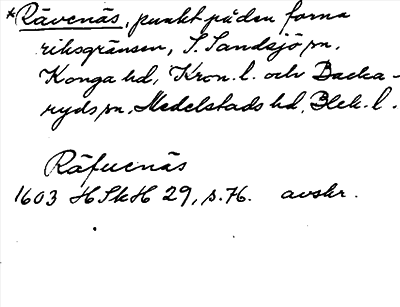 *Rävenäs, punkt på den forna
riksgränsen, S. Sandsjö sn,
Konga hd, Kron. l. och Backa-
ryds sn, Medelstads hd, Blek. l.
Räfuenäs
1603 HSkH 29, s. 76. avskr.